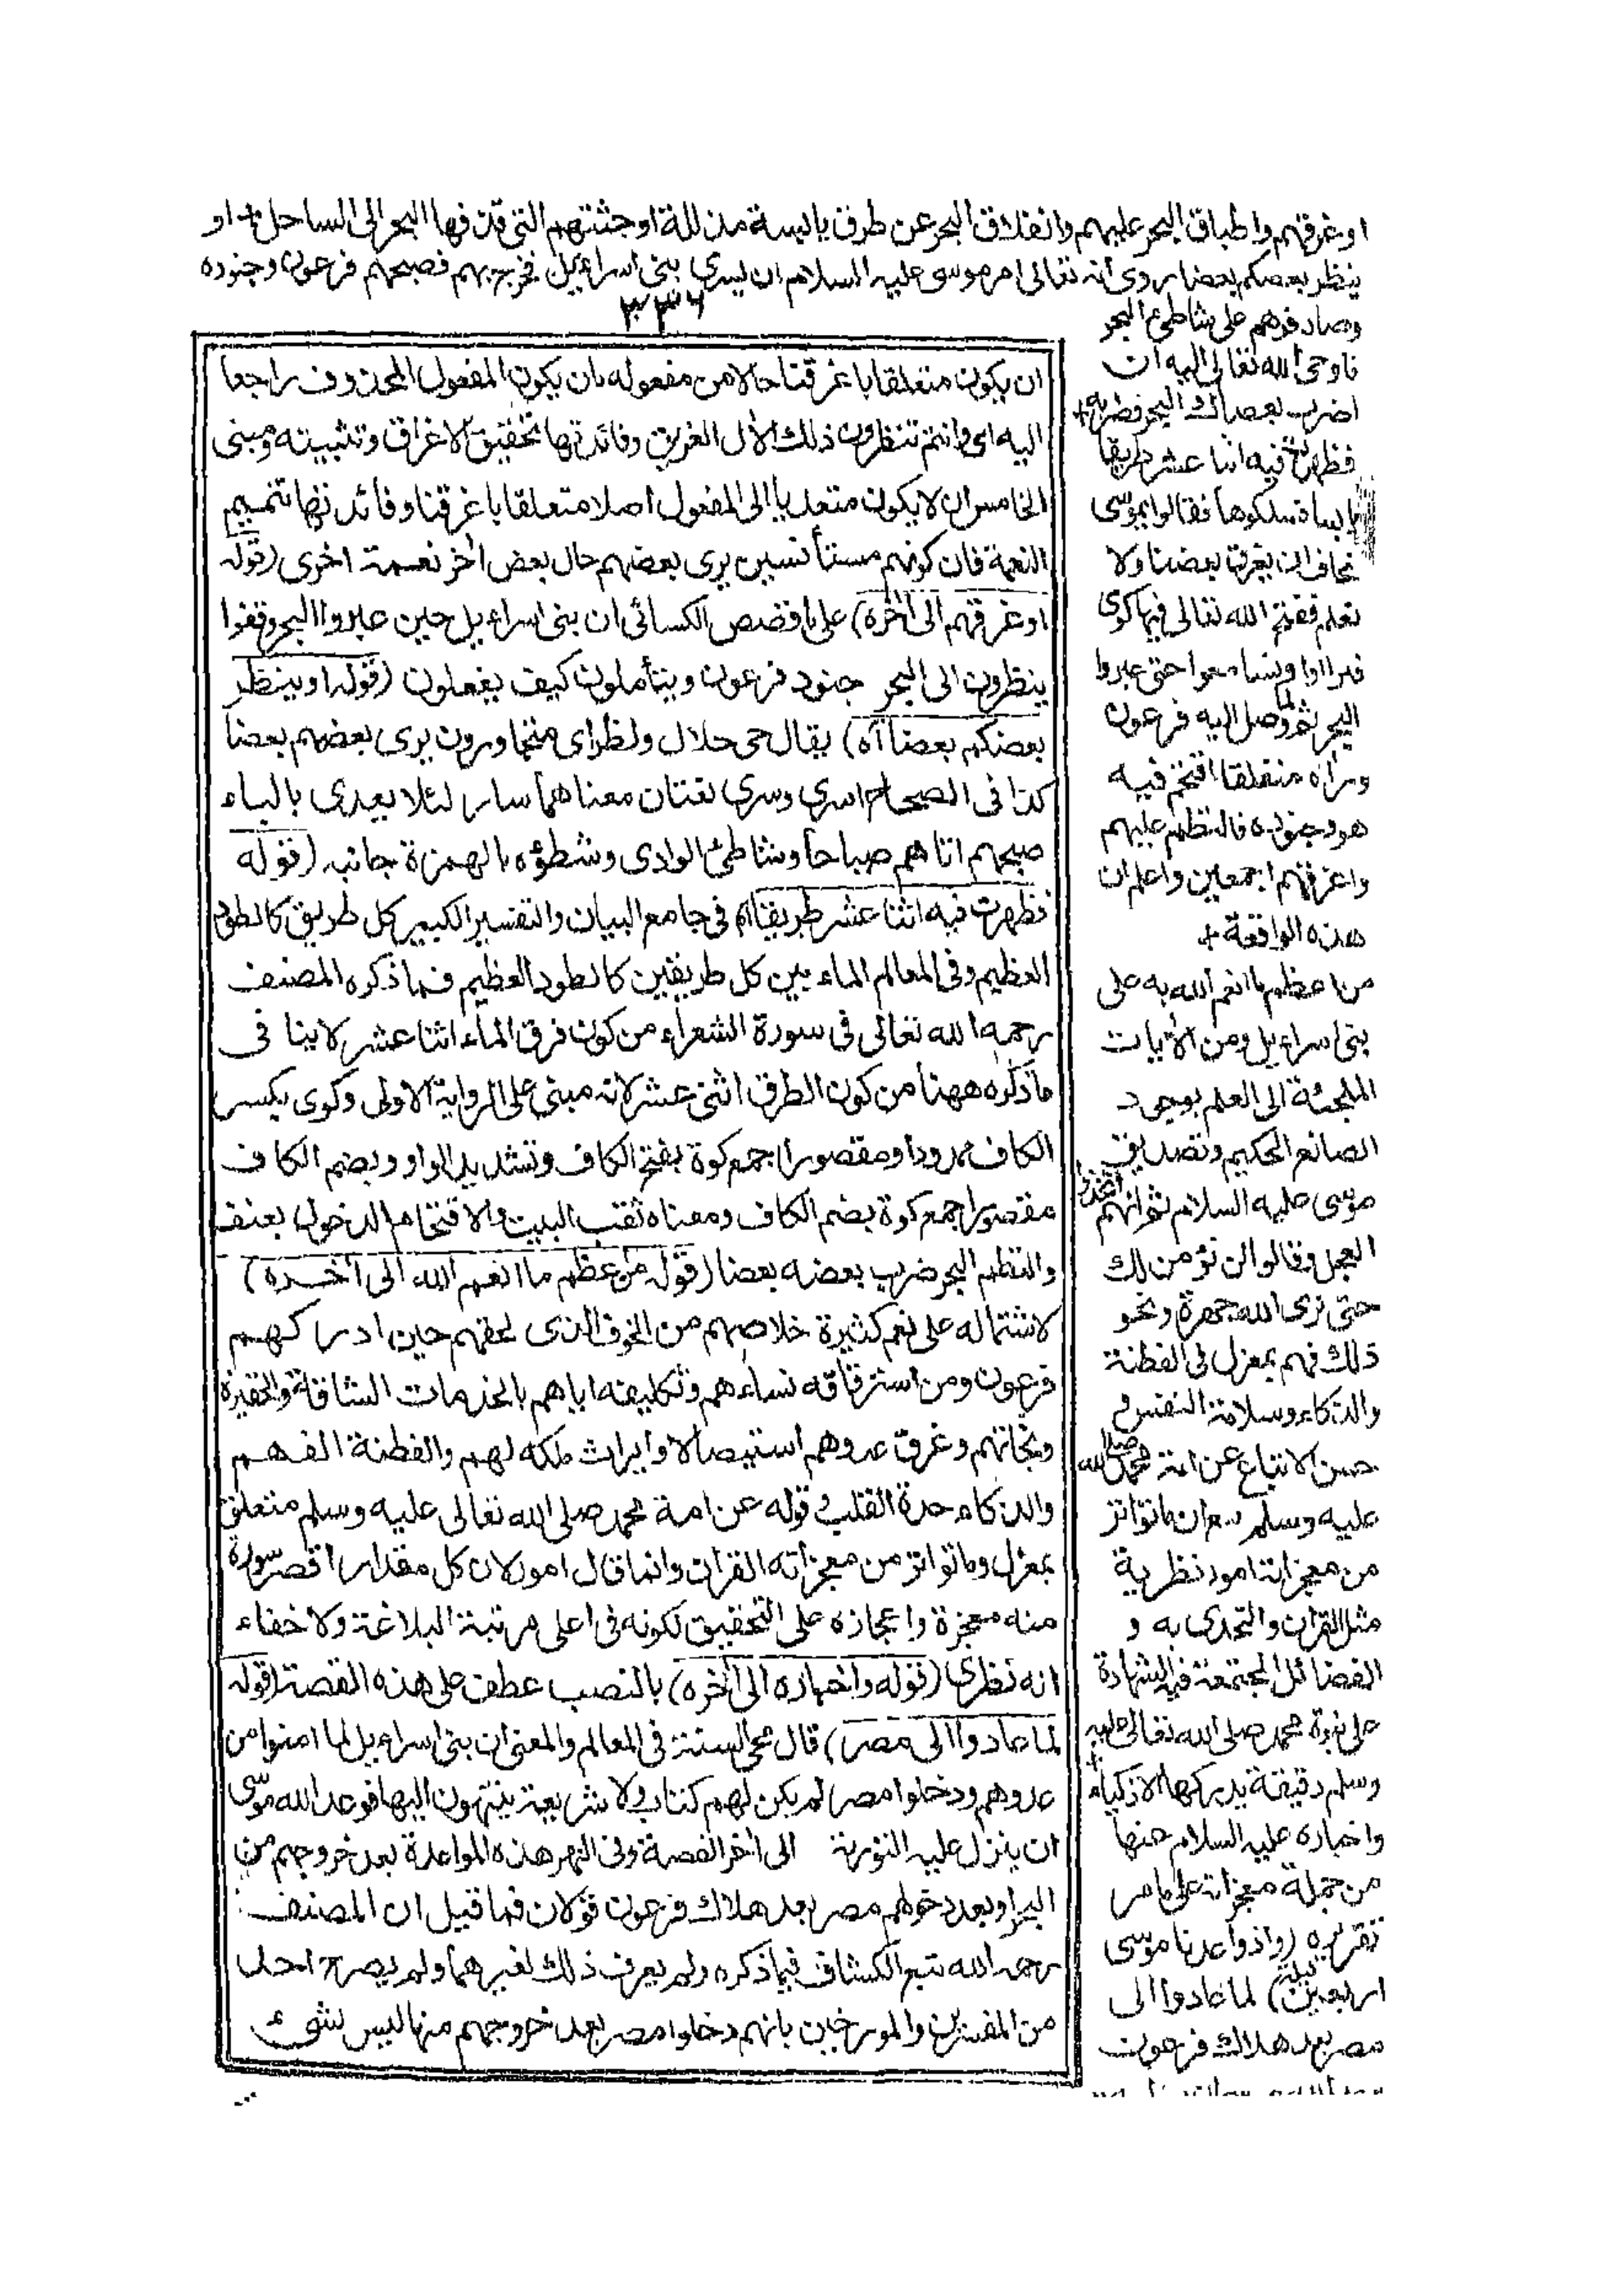 او غرقهم واطباق البحر عليهم وانفلاق البحر عن طرق يابسة مذللة او جثثهم التى قذفها البحر الى الساحل + او
ينظر بعضكم بعضا روى انه تعالى امر موسى عليه السلام ان يسرى بنى اسراءيل فخرج بهم فصبحهم فرعون وجنوده
وصادفوهم على شاطئ البحر
فاوحى الله تعالى اليه ان
اضرب بعصاك البحر فضربه +
فظهرت فيه اثنا عشر طريقا
يابسا فسلكوها فقالوا يموسى
نخاف ان يغرق بعضنا ولا
نعلم ففتح الله تعالى فيها كوى
فتراأوا وتسامعوا حتى عبروا
البحر ثم لما وصل اليه فرعون
ورآه منفلقا اقتحم فيه
هو وجنوده فالتطم عليهم
واغرقهم اجمعين واعلم ان
هذه الواقعة +
من اعظم ما انعم الله به على
بنى اسراءيل ومن الآيات
الملجئة الى العلم بوجود
الصانع الحكيم وتصديق
موسى عليه السلام ثم انهم اتخذوا
العجل وقالوا لن نؤمن لك
حتى نرى الله جهرة ونحو
ذلك فهم بمعزل فى الفطنة
والذكاء وسلامة النفس و
حسن الاتباع عن امة محمد صلى الله
عليه وسلم مع ان ما تواتر
من معجزاته امور نظرية
مثل القرآن والتحدى به و
الفضائل المجتمعة فيه الشهادة
على نبوة محمد صلى الله تعالى عليه
وسلم دقيقة يدركها الاذكياء
واخباره عليه السلام عنها
من جملة معجزاته على ما مر
تقريره (واذ واعدنا موسى
اربعين ليلة) لما عادوا الى
مصر بعد هلاك فرعون
٣٣٦
ان يكون متعلقا باغرقنا حالا من مفعوله بان يكون المفعول المحذوف راجعا
اليه اى وانتم تنظرون ذلك الآل الغريق وفائدتها تحقيق الاغراق وتثبيته ومبنى
الخامس ان لا يكون متعديا الى المفعول اصلا متعلقا باغرقنا وفائدتها تتميم
النعمة فان كونهم مستأنسين يرى بعضهم حال بعض آخر نعمة اخرى (قوله
او غرقهم الى آخره) على ما فى قصص الكسائى ان بنى اسراءيل حين عبروا البحر وقفوا
ينظرون الى البحر جنود فرعون ويتأملون كيف يفعلون (قوله او ينظر
بعضكم بعضا آه) يقال حى حلال ونظر اى متجاورون يرى بعضهم بعضا
كذا فى الصحاح اسرى وسرى لغتان معناهما سار ليلا يعدى بالباء
صبحهم اتاهم صباحا وشاطئ الوادى وشطؤه بالهمزة جانبه (قوله
فظهرت فيه اثنا عشر طريقا آه) فى جامع البيان والتفسير الكبير كل طريق كالطود
العظيم وفى المعالم الماء بين كل طريقين كالطود العظيم فما ذكره المصنف
رحمه الله تعالى فى سورة الشعراء من كون فرق الماء اثنا عشر لا ينا فى
ما ذكره ههنا من كون الطرق اثنى عشر لانه مبنى على الرواية الاولى وكوى بكسر
الكاف ممدودا ومقصورا جمع كوة بفتح الكاف وتشديد الواو وبضم الكاف
مقصورا جمع كوة بضم الكاف ومعناه ثقب البيت والاقتحام الدخول بعنف
والتطم البحر ضرب بعضه بعضا (قوله من اعظم ما انعم الله الى آخره)
لاشتماله على نعم كثيرة خلاصهم من الخوف الذى لحقهم حين ادراكهم
فرعون ومن استرقاقه نساءهم وتكليفه اياهم بالخدمات الشاقة والحقيرة
ونجاتهم وغرق عدوهم استيصالا وايراث ملكه لهم والفطنة الفهم
والذكاء حدة القلب وقوله عن امة محمد صلى الله تعالى عليه وسلم متعلق
بمعزل وما تواتر من معجزاته القرآن وانما قال امور لان كل مقدار اقصر سورة
منه معجزة واعجازه على التحقيق لكونه فى اعلى مرتبة البلاغة ولا خفاء
انه نظرى (قوله واخباره الى آخره) بالنصب عطف على هذه القصة (قوله
لما عادوا الى مصر) قال محى السنة فى المعالم والمعنى ان بنى اسراءيل لما امنوا من
عدوهم ودخلوا مصر لم يكن لهم كتاب ولا شريعة ينتهون اليها فوعد الله موسى
ان ينزل عليه التورية الى آخر القصة وفى النهر هذه المواعدة بعد خروجهم من
البحر او بعد دخولهم مصر بعد هلاك فرعون قولان فما قيل ان المصنف
رحمه الله تبع الكشاف فيما ذكره ولم يعرف ذلك لغيرهما ولم يصرح احد
من المفسرين والمورخين بانهم دخلوا مصر بعد خروجهم منها ليس بشىء